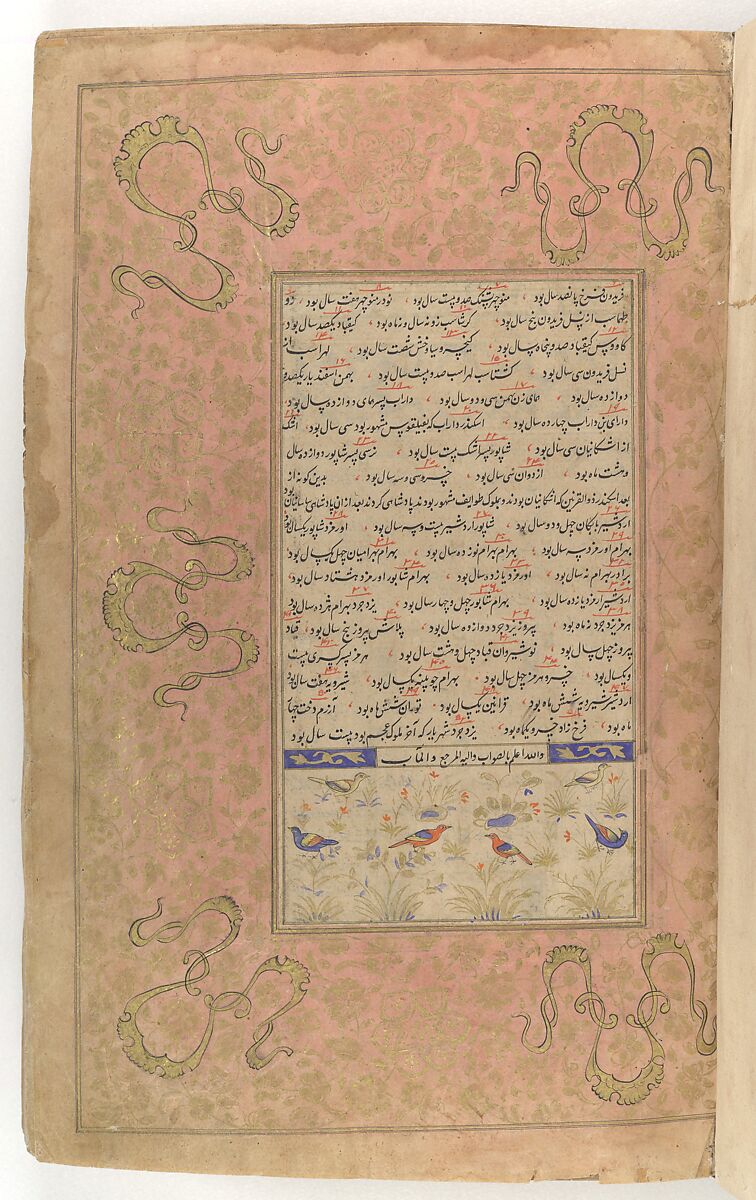 فریدون فرخ پانصد سال بود منوچهر صد و بیست سال بود نودر منوچهر هفت سال بود زو
طهماسب از نسل فریدون پنج سال بود گرشاسب زو نه سال و نه ماه بود کیقباد یکصد سال بود
کاووس کیقباد صد و پنجاه سال بود کیخسرو سیاوخش شصت سال بود لهراسب از
نسل فریدون سی سال بود گشتاسب لهراسب صد و بیست سال بود بهمن اسفندیار یکصد و
دوازده سال بود همای زن بهمن سی و دو سال بود داراب پسر همای دوازده سال بود
دارای بن داراب چهارده سال بود اسکندر داراب که بفیلقوس مشهور بود سی سال بود اشک
از اشکانیان سی سال بود شاپور پسر اشک بیست سال بود نرسی پسر شاپور دوازده سال
و هشت ماه بود اردوان سی سال بود خسرو سی و سه سال بود بدین گونه از
بعد اسکندر ذوالقرنین که اشکانیان بودند و بملوک طوایف مشهور بودند پادشاهی کردند بعد از آن پادشاهی ساسانیان بود
اردشیر بابکان چهل و دو سال بود شاپور اردشیر بیست و سه سال بود اورمزد شاپور یکسال بود
بهرام اورمزد سه سال بود بهرام بهرام نوزده سال بود بهرام بهرامیان چهل یکسال بود
برادر بهرام نه سال بود اورمزد یازده سال بود بهرام شاپور اورمزد هشتاد سال بود
اردشیر ارمزد یازده سال بود بهرام شاپور چهل و چهار سال بود یزدجرد بهرام هژده سال بود
هرمز یزدجرد نه ماه بود پیروز یزدجرد دوازده سال بود پلاش پیروز پنج سال بود قباد
پیروز چهل سال بود نوشیروان قباد چهل و هشت سال بود هرمز پسر کسری بیست
و یکسال بود خسرو هرمز چهل سال بود بهرام چوبینه یکسال بود شیرویه هفت سال بود
اردشیر شیرویه شش ماه بود فرایین یکسال بود توران شش ماه بود آزرم دخت چهار
ماه بود فرخ زاد خسرو یکماه بود یزدجرد شهریار که آخر ملوک عجم بود بیست سال بود
والله اعلم بالصواب والیه المرجع والمآب